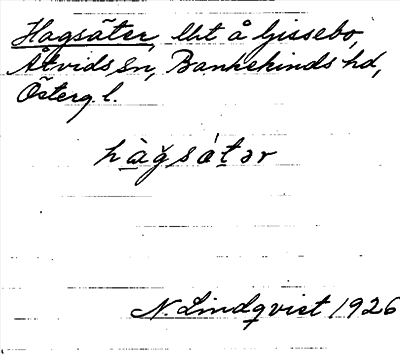 Hagsäter, lht å Gissebo,
Åtvids sn, Bankekinds hd,
Österg. l.
hàgsátər
N. Lindqvist 1926